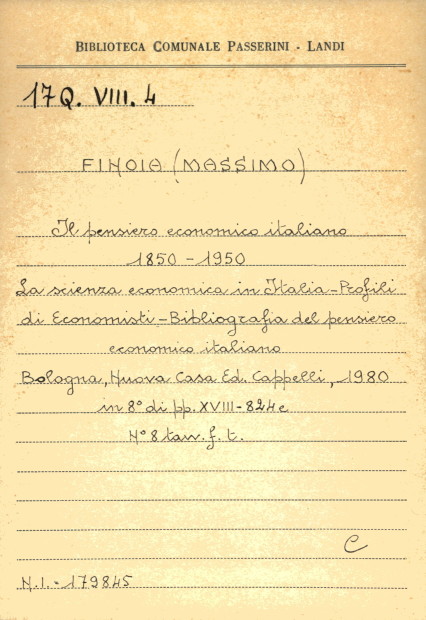 BIBLIOTECA COMUNALE PASSERINI - LANDI
17Q. VIII. 4
FINOIA (MASSIMO)
Il pensiero economico italiano
1850 - 1950
La scienza economica in Italia - Profili
di Economisti - Bibliografia del pensiero
economico italiano
Bologna, Nuova Casa Ed. Cappelli, 1980
in 8° di pp. XVIII - 824 e
N° 8 tav. f. t.
C
N.I. - 179845